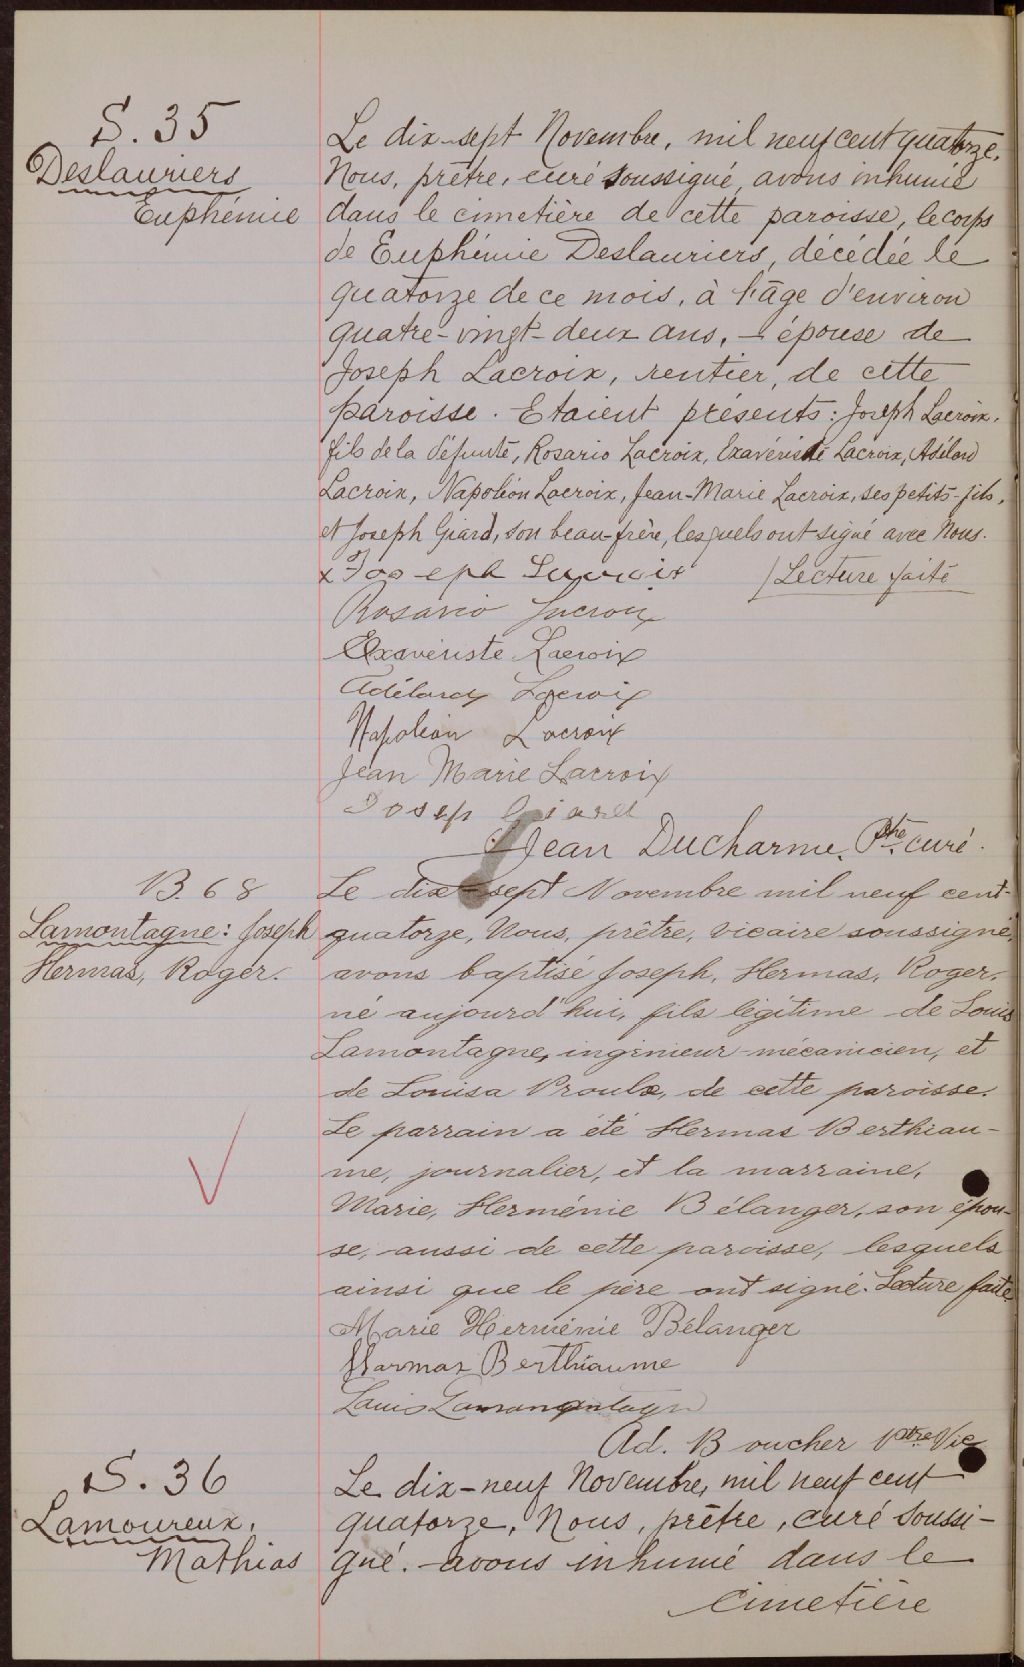 S. 35
Deslauriers
Euphémie
Le dix-sept Novembre, mil neuf cent quatorze,
Nous, prêtre, curé soussigné, avons inhumé
dans le cimetière de cette paroisse, le corps
de Euphémie Deslauriers, décédée le
quatorze de ce mois, à l'âge d'environ
quatre-vingt-deux ans, - épouse de
Joseph Lacroix, rentier, de cette
paroisse. Etaient présents: Joseph Lacroix,
fils de la défunte, Rosario Lacroix, Exavériste Lacroix, Adélard
Lacroix, Napoléon Lacroix, Jean-Marie Lacroix, ses petits-fils,
et Joseph Giard, son beau-frère, lesquels ont signé avec Nous.
x Joseph Lacroix / Lecture faite
Rosario Lacroix
Exavériste Lacroix
Adélard Lacroix
Napoléon Lacroix
Jean Marie Lacroix
Josep Giard
Jean Ducharme, Ptre curé.
B. 68
Lamontagne: Joseph
Hermas, Roger.
Le dix-sept Novembre mil neuf cent-
quatorze, Nous, prêtre, vicaire soussigné,
avons baptisé Joseph, Hermas, Roger,
né aujourd'hui, fils légitime de Louis
Lamontagne, ingénieur-mécanicien, et
de Louisa Proulx, de cette paroisse.
Le parrain a été Hermas Berthiau-
me, journalier, et la marraine,
Marie, Herménie Bélanger, son épou-
se, aussi de cette paroisse, lesquels
ainsi que le père ont signé. Lecture faite
Marie Herménie Bélanger
Harmas Berthiaume
Louis Lamontagn
Ad. Boucher Ptre Vic
S. 36
Lamoureux,
Mathias
Le dix-neuf Novembre, mil neuf cent
quatorze, Nous, prêtre, curé soussi-
gné. avons inhumé dans le
cimetière